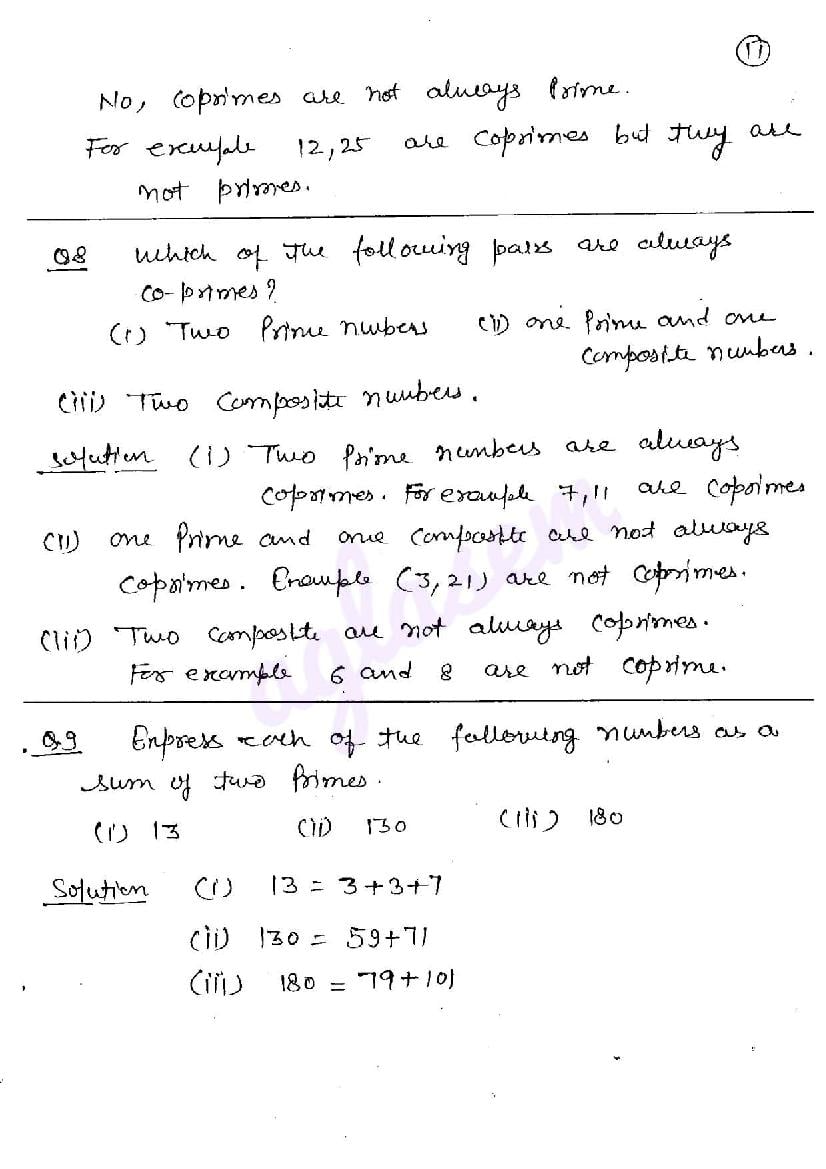 11
No, Coprimes are not always Prime.
For example 12, 25 are Coprimes but they are
not primes.
Q8 Which of the following pairs are always
co-primes?
(i) Two Prime numbers (ii) one Prime and one
composite numbers.
(iii) Two Composite numbers.
Solution (i) Two Prime numbers are always
coprimes. For example 7, 11 are Coprimes
(ii) one Prime and one Composite are not always
Coprimes. Example (3, 21) are not Coprimes.
(iii) Two Composite are not always Coprimes.
For example 6 and 8 are not coprime.
aglasem
Q9 Express each of the following numbers as a
sum of two Primes.
(i) 13 (ii) 130 (iii) 180
Solution (i) 13 = 3+3+7
(ii) 130 = 59+71
(iii) 180 = 79+101